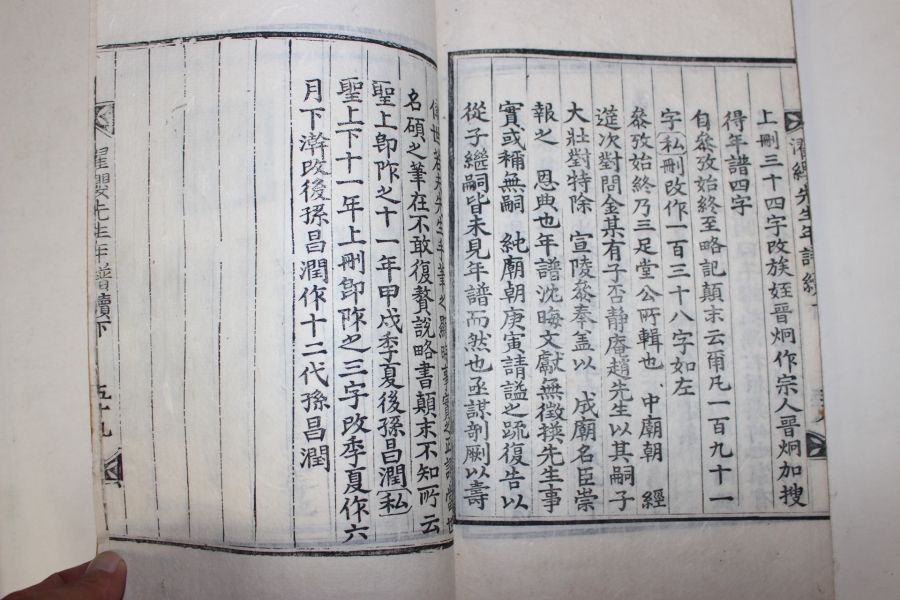 上刪三十四字改族姪晉炯作宗人晉炯加搜
得年譜四字
自叅攷始終至略記顛末云爾凡一百九十一
字(私刪改作一百三十八字如左
叅攷始終乃三足堂公所輯也 中廟朝 經
筵次對問金某有子否靜庵趙先生以其嗣子
大壯對特除 宣陵叅奉盖以 成廟名臣崇
報之 恩典也年譜沈晦文獻無徵撰先生事
實或稱無嗣 純廟朝庚寅請謚之疏復告以
從子繼嗣皆未見年譜而然也亟謀剞劂以壽
名碩之筆在不敢復贅說略書顛末不知所云
聖上卽阼之十一年甲戌季夏後孫昌潤(私
聖上下十一年上刪卽阼之三字改季夏作六
月下澣改後孫昌潤作十二代孫昌潤
濯纓先生年譜續下 五十九